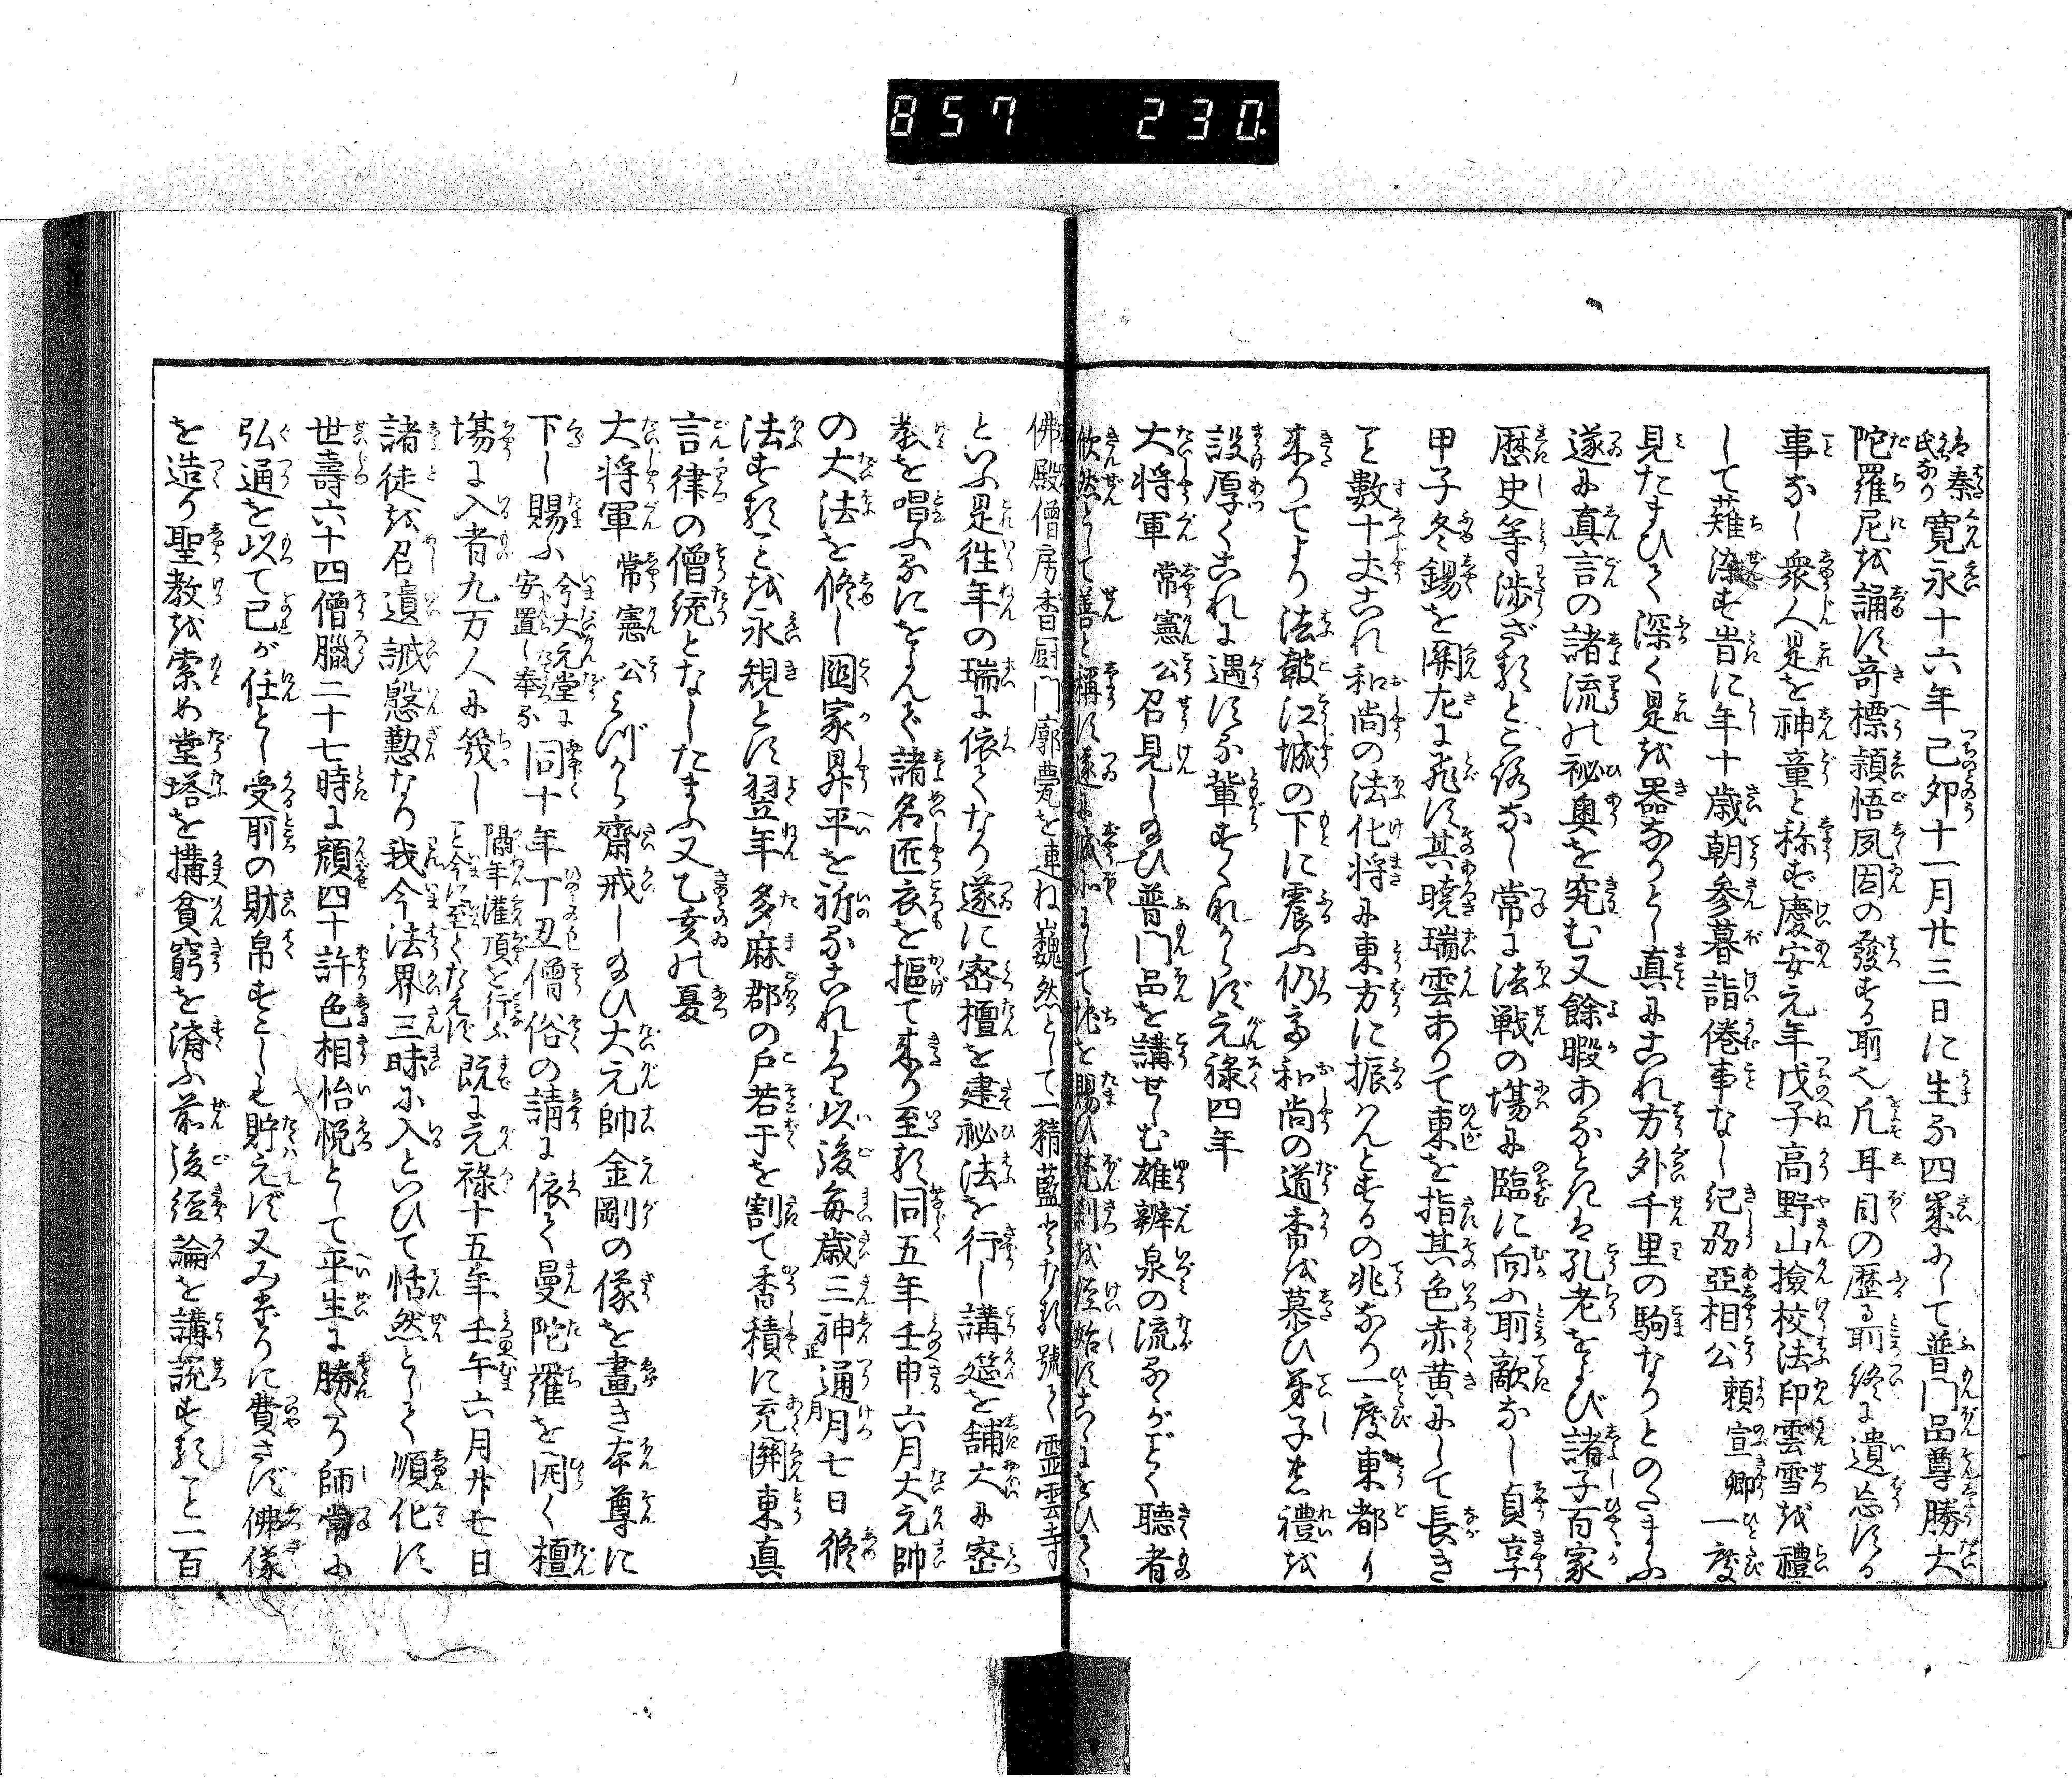 857 230.
は秦氏なり寛永十六年己卯十一月廿三日に生る四歳にして普門品尊勝大
陀羅尼を誦す奇標頴悟夙因の發する所也凡耳目の歴る所終に遺忘する
事なし衆人是を神童と称ず慶安元年戊子高野山撿校法印雲雪を禮
して薙染す皆に年十歳朝参暮詣倦事なし紀刕亞相公頼宣卿一度
見たまひて深く是を器なりとし真にこれ方外千里の駒なりとのたまふ
遂に真言の諸流の祕奥を究む又餘暇あるときは孔老をよび諸子百家
歴史等渉ざるところなし常に法戦の場に臨に向ふ所敵なし貞享
甲子冬錫を關左に飛す其暁瑞雲ありて東を指其色赤黄にして長き
こと數十丈これ和尚の法化将に東方に振はんとするの兆なり一度東都に
来りてより法皷江城の下に震ふ仍而和尚の道香を慕ひ弟子の禮を
設厚くこれに遇する輩すくなからず元禄四年
大将軍常憲公召見し給ひ普門品を講せしむ雄辨泉の流るゝがごとく聴者
欣然として善と稱す遂に城北にして地を賜ひ梵刹を經始す
佛殿僧房香厨門廓甍を連ね巍然として一精藍となる號て霊雲寺
といふ是徃年の瑞に依てなり遂に密檀を建祕法を行し講筵を舗大に密
教を唱ふるにをよんで諸名匠衣を摳て来り至る同五年壬申六月大元帥
の大法を修し國家昇平を祈るこれより以後毎歳三神通月正月七日修
法することを永規とす翌年多麻郡の戸若干を割て香積に充關東真
言律の僧統となしたまふ又乙亥の夏
大将軍常憲公みづから齋戒し給ひ大元帥金剛の像を畫き本尊に
下し賜ふ今大元堂に安置し奉る同十年丁丑僧俗の請に依て曼陀羅を開く檀
場に入者九万人に幾し隔年灌頂を行ふこと今に至てたえず既に元禄十五年壬午六月廿七日
諸徒を召遺誡慇懃なり我今法界三昧に入といひて恬然として順化す
世壽六十四僧臘二十七時に顔四十許色相怡悦として平生に勝たり師常に
弘通を以て己が任とし受所の財帛すこしも貯えず又みだりに費さず佛像
を造り聖教を索め堂塔を搆貧窮を濟ふ前後經論を講説すること二百